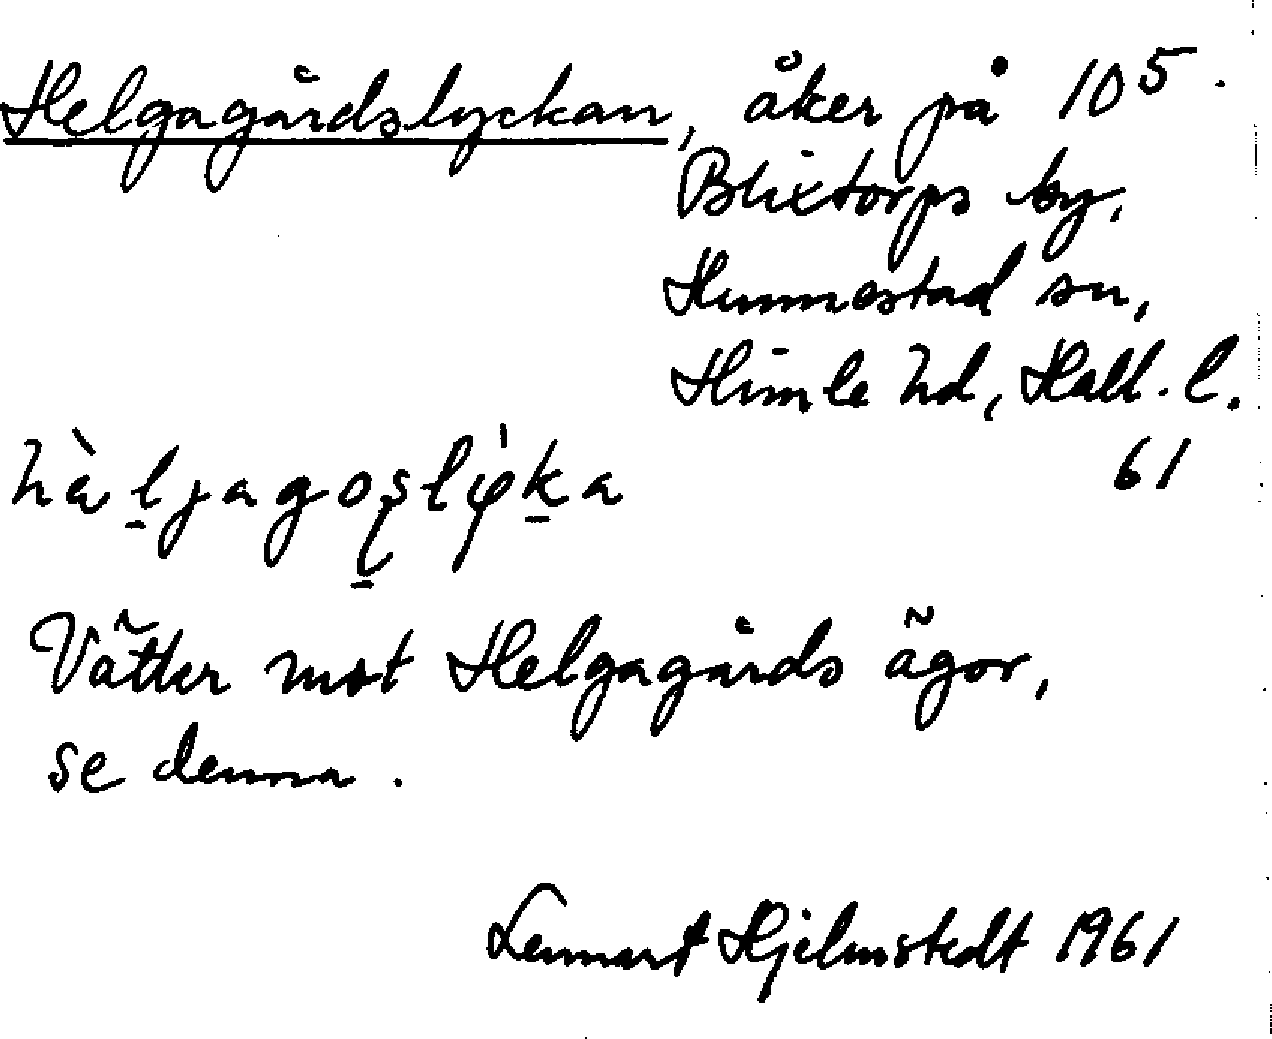 Helgagårdslyckan, åker på 10⁵.
Blixtorps by,
Hunnestad sn,
Himle hd, Hall. l.
61
hàljagoşlýka
Vätter mot Helgagårds ägor,
se denna.
Lennart Hjelmstedt 1961